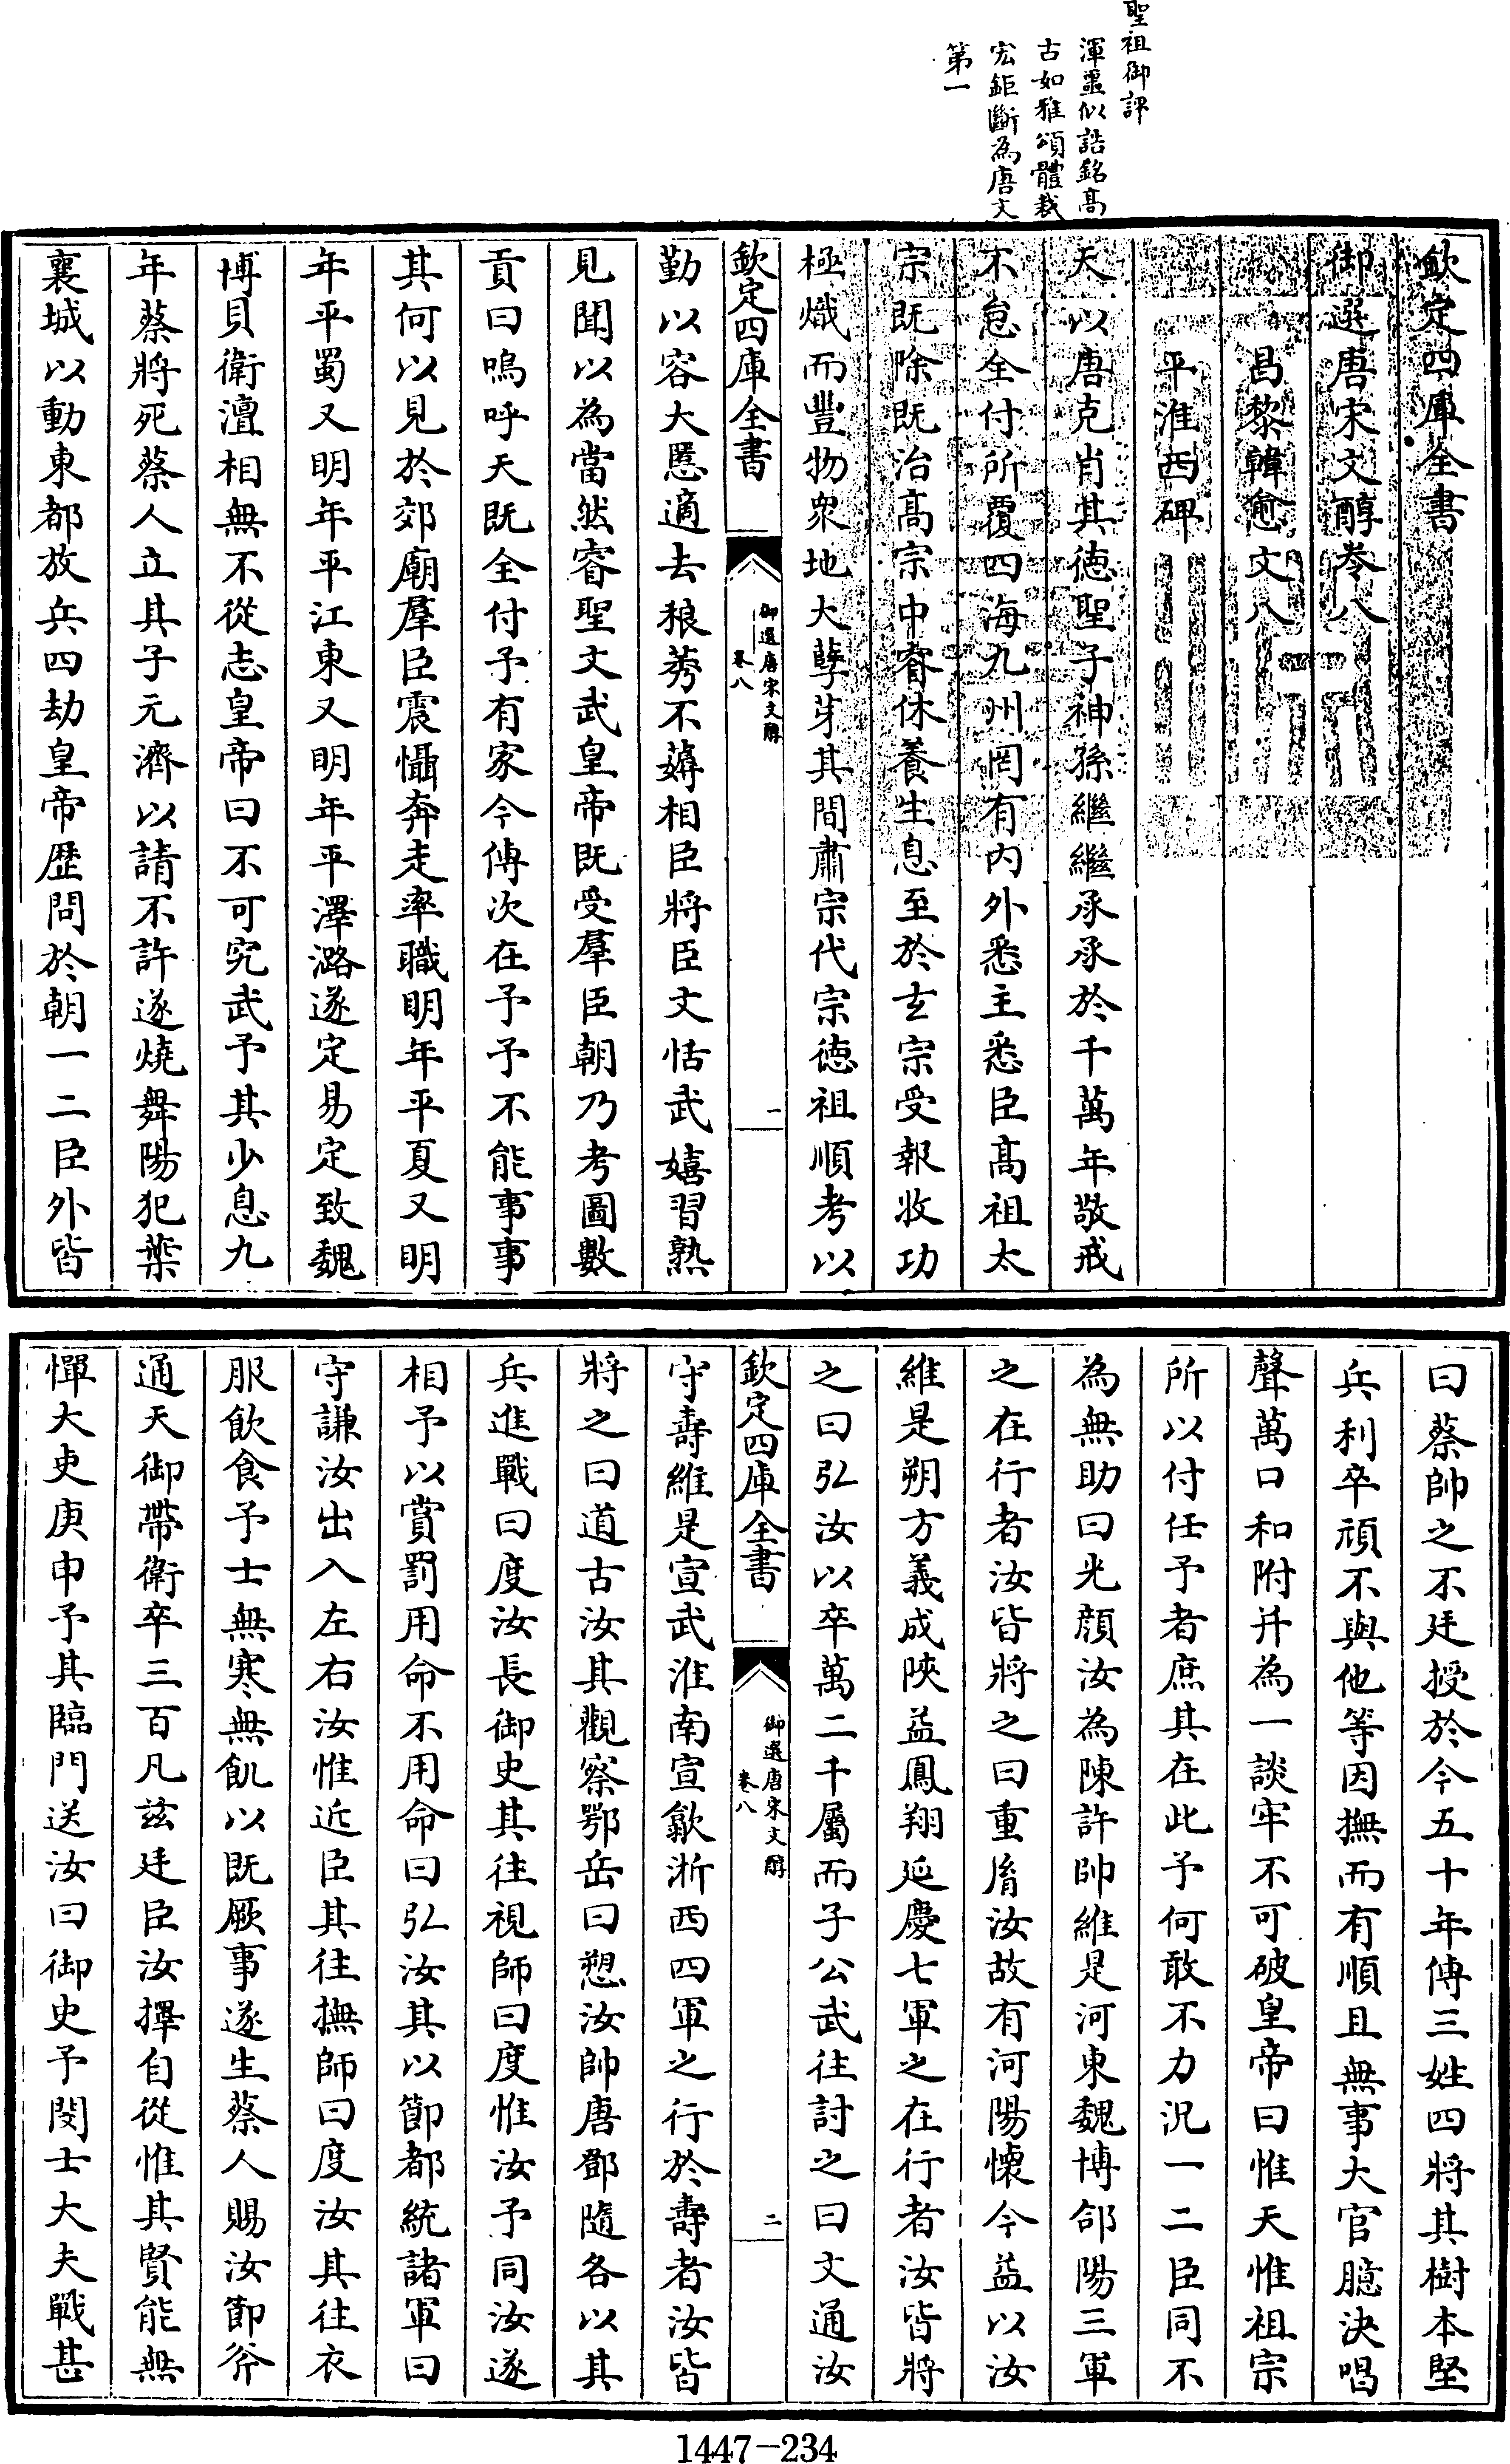 聖祖御評
渾噩似誥銘高
古如雅頌體裁
宏鉅斷為唐文
第一
欽定四庫全書
御選唐宋文醇卷八
昌黎韓愈文八
平淮西碑
天以唐克肖其德聖子神孫繼繼承承於千萬年敬戒
不怠全付所覆四海九州罔有內外悉主悉臣高祖太
宗既除既治高宗中睿休養生息至於玄宗受報收功
極熾而豐物衆地大孽芽其間肅宗代宗德祖順考以
欽定四庫全書
御選唐宋文醇
卷八
一
勤以容大慝適去稂莠不薅相臣將臣文恬武嬉習熟
見聞以為當然睿聖文武皇帝既受羣臣朝乃考圖數
貢曰嗚呼天既全付予有家今傳次在予予不能事事
其何以見於郊廟羣臣震懾奔走率職明年平夏又明
年平蜀又明年平江東又明年平澤潞遂定易定致魏
博貝衛澶相無不從志皇帝曰不可究武予其少息九
年蔡將死蔡人立其子元濟以請不許遂燒舞陽犯葉
襄城以動東都放兵四劫皇帝歷問於朝一二臣外皆
曰蔡帥之不廷授於今五十年傳三姓四將其樹本堅
兵利卒頑不與他等因撫而有順且無事大官臆決唱
聲萬口和附并為一談牢不可破皇帝曰惟天惟祖宗
所以付任予者庶其在此予何敢不力況一二臣同不
為無助曰光顏汝為陳許帥維是河東魏博郃陽三軍
之在行者汝皆將之曰重胤汝故有河陽懷今益以汝
維是朔方義成陝益鳳翔延慶七軍之在行者汝皆將
之曰弘汝以卒萬二千屬而子公武往討之曰文通汝
欽定四庫全書
御選唐宋文醇
卷八
二
守壽維是宣武淮南宣歙浙西四軍之行於壽者汝皆
將之曰道古汝其觀察鄂岳曰愬汝帥唐鄧隨各以其
兵進戰曰度汝長御史其往視師曰度惟汝予同汝遂
相予以賞罰用命不用命曰弘汝其以節都統諸軍曰
守謙汝出入左右汝惟近臣其往撫師曰度汝其往衣
服飲食予士無寒無飢以既厥事遂生蔡人賜汝節斧
通天御帶衛卒三百凡茲廷臣汝擇自從惟其賢能無
憚大吏庚申予其臨門送汝曰御史予閔士大夫戰甚
1447-234